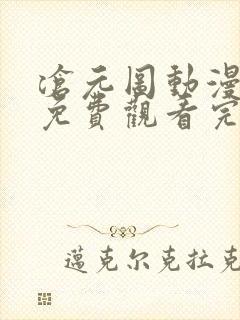 滄元圖動漫
免費觀看完
邁克尔克拉克